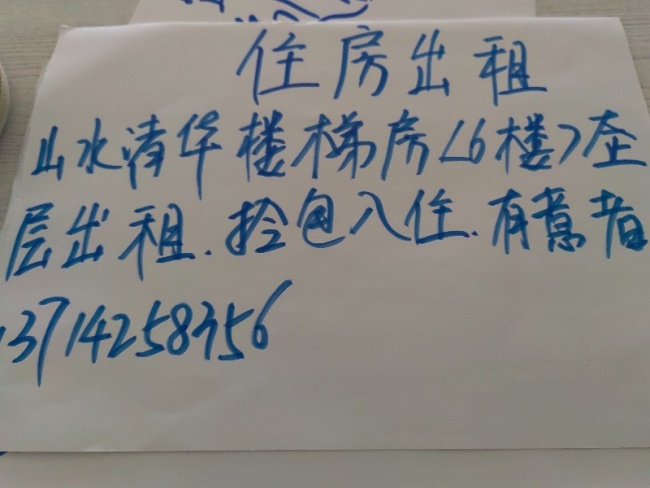 住房出租
山水清华楼梯房<6楼>全
层出租.拎包入住.有意者
13714258356